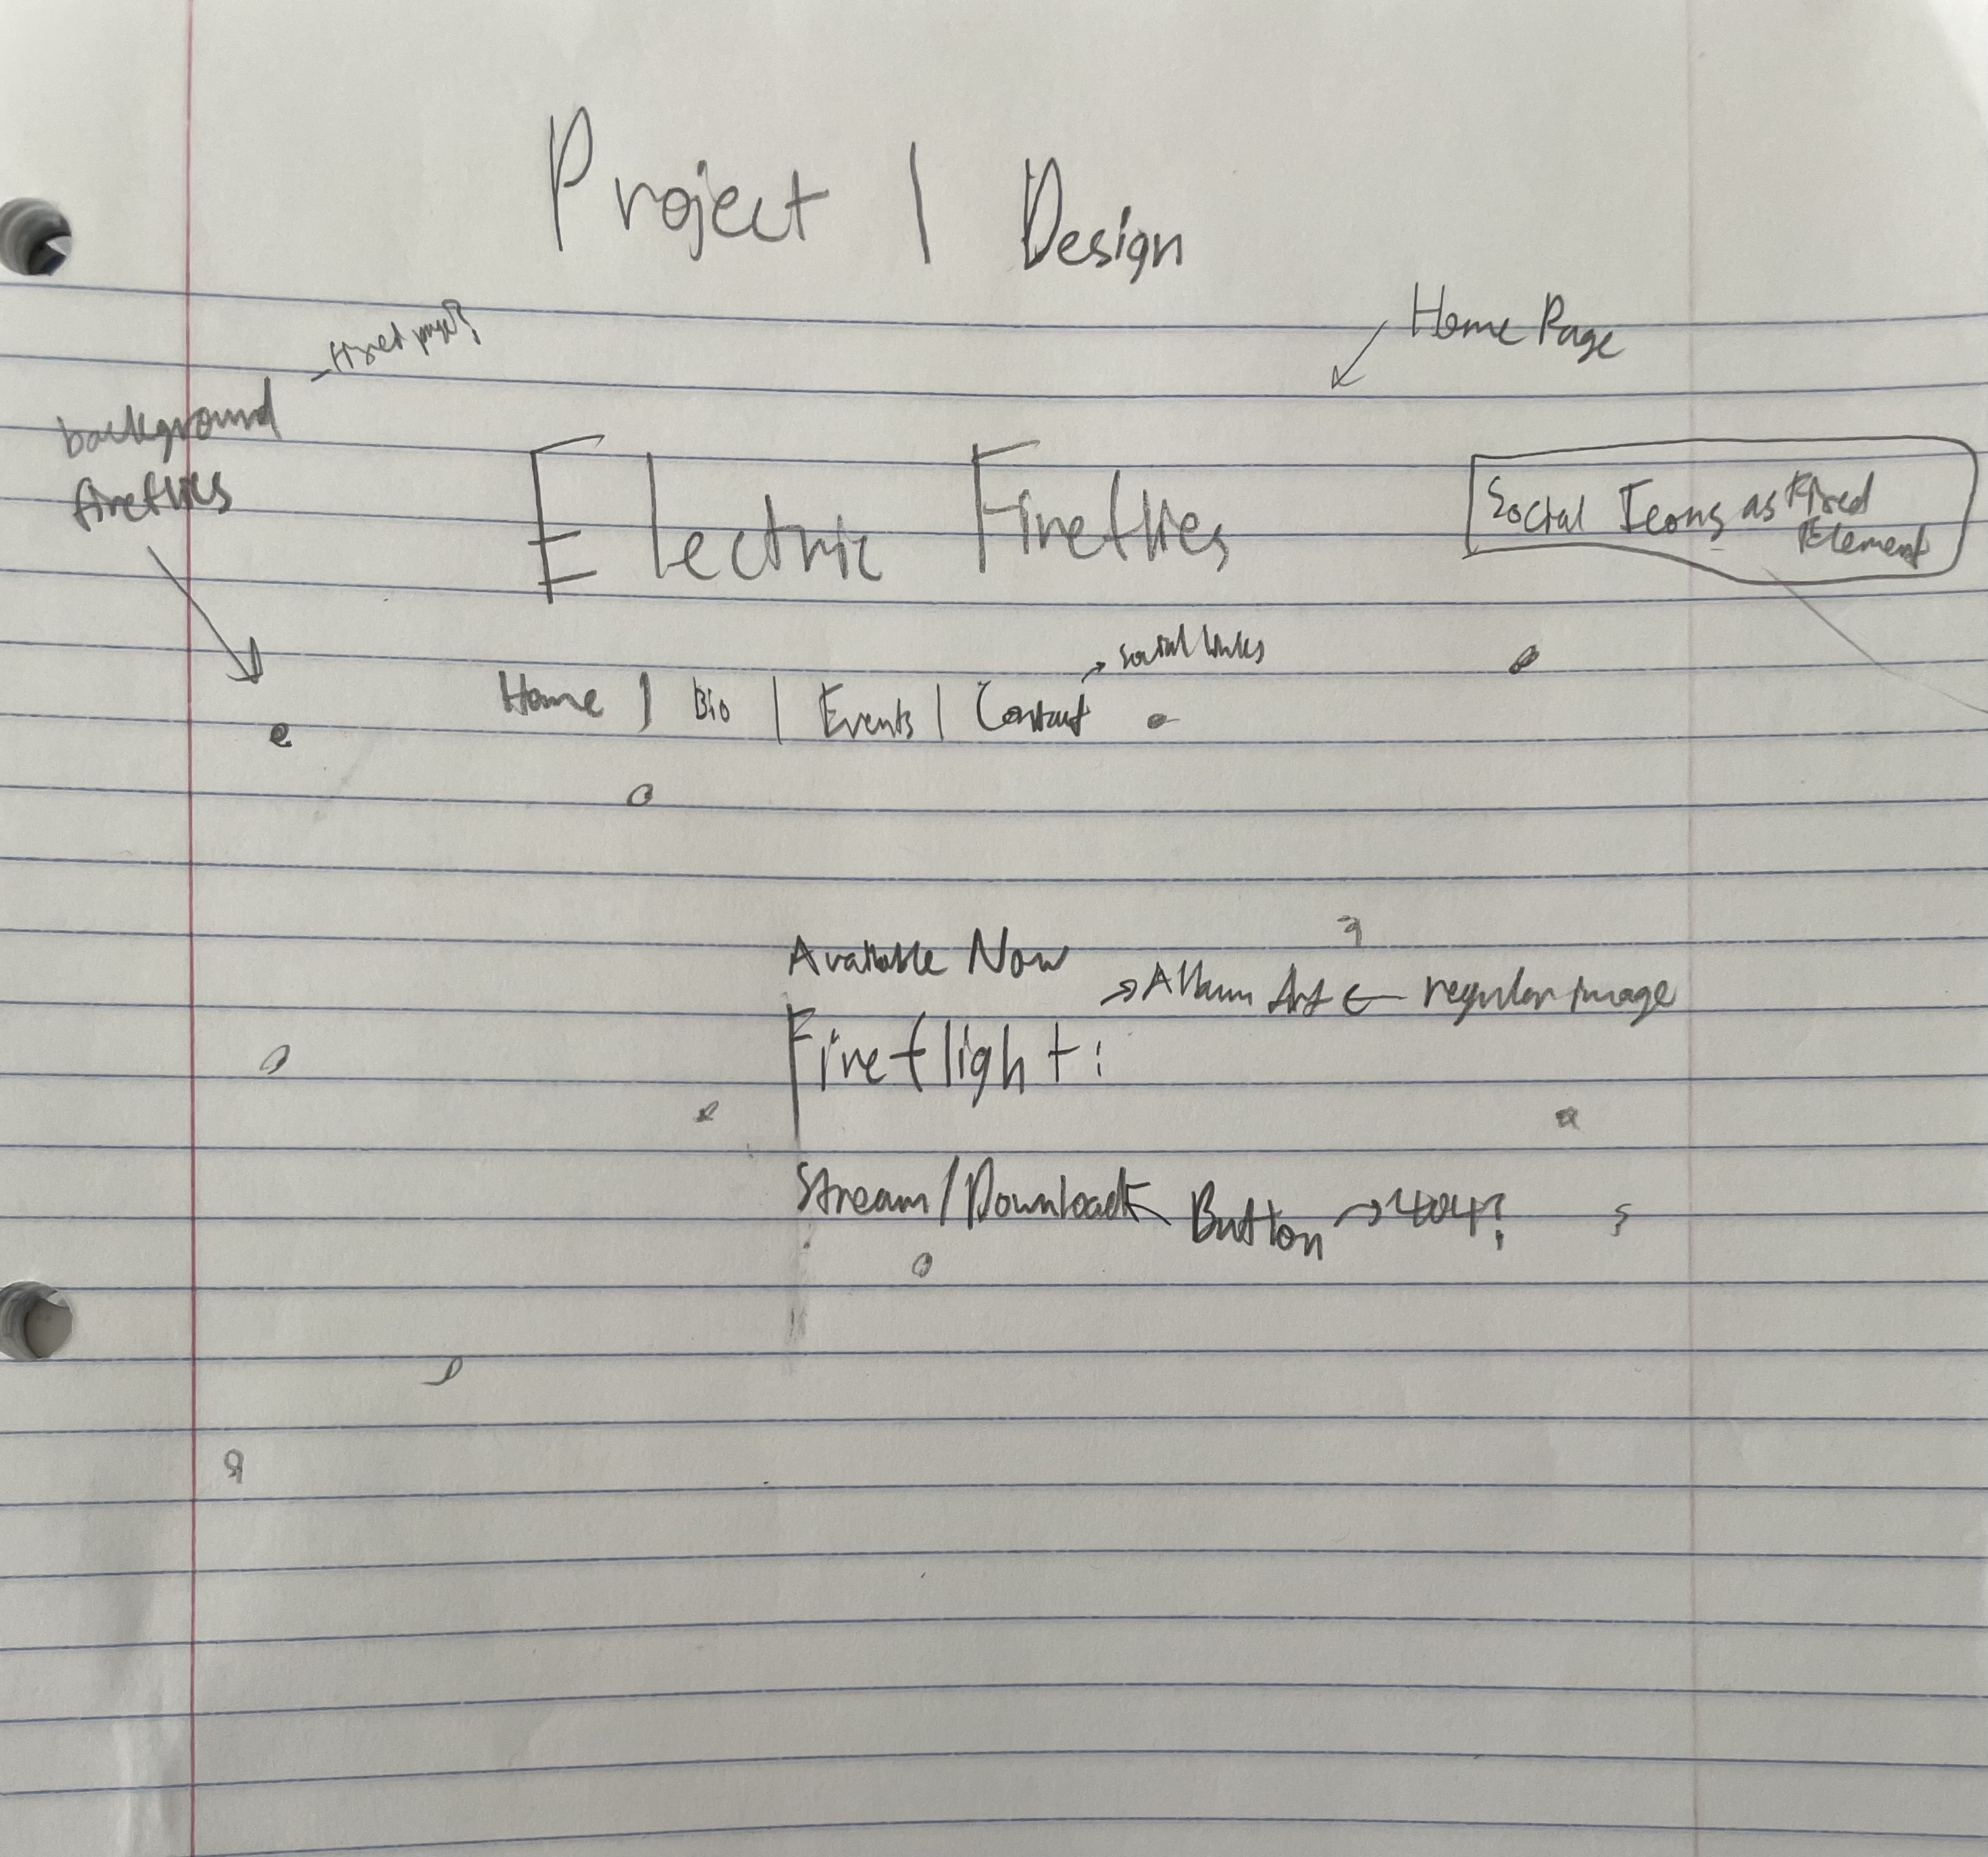 Project 1 Design
Home Page
fixed page?
background
fireflies
Electric Fireflies
Social Icons as Fixed
Element
social links
Home | Bio | Events | Contact
Available Now
Album Art ← regular image
Fireflight:
Stream/Download Button → 404?